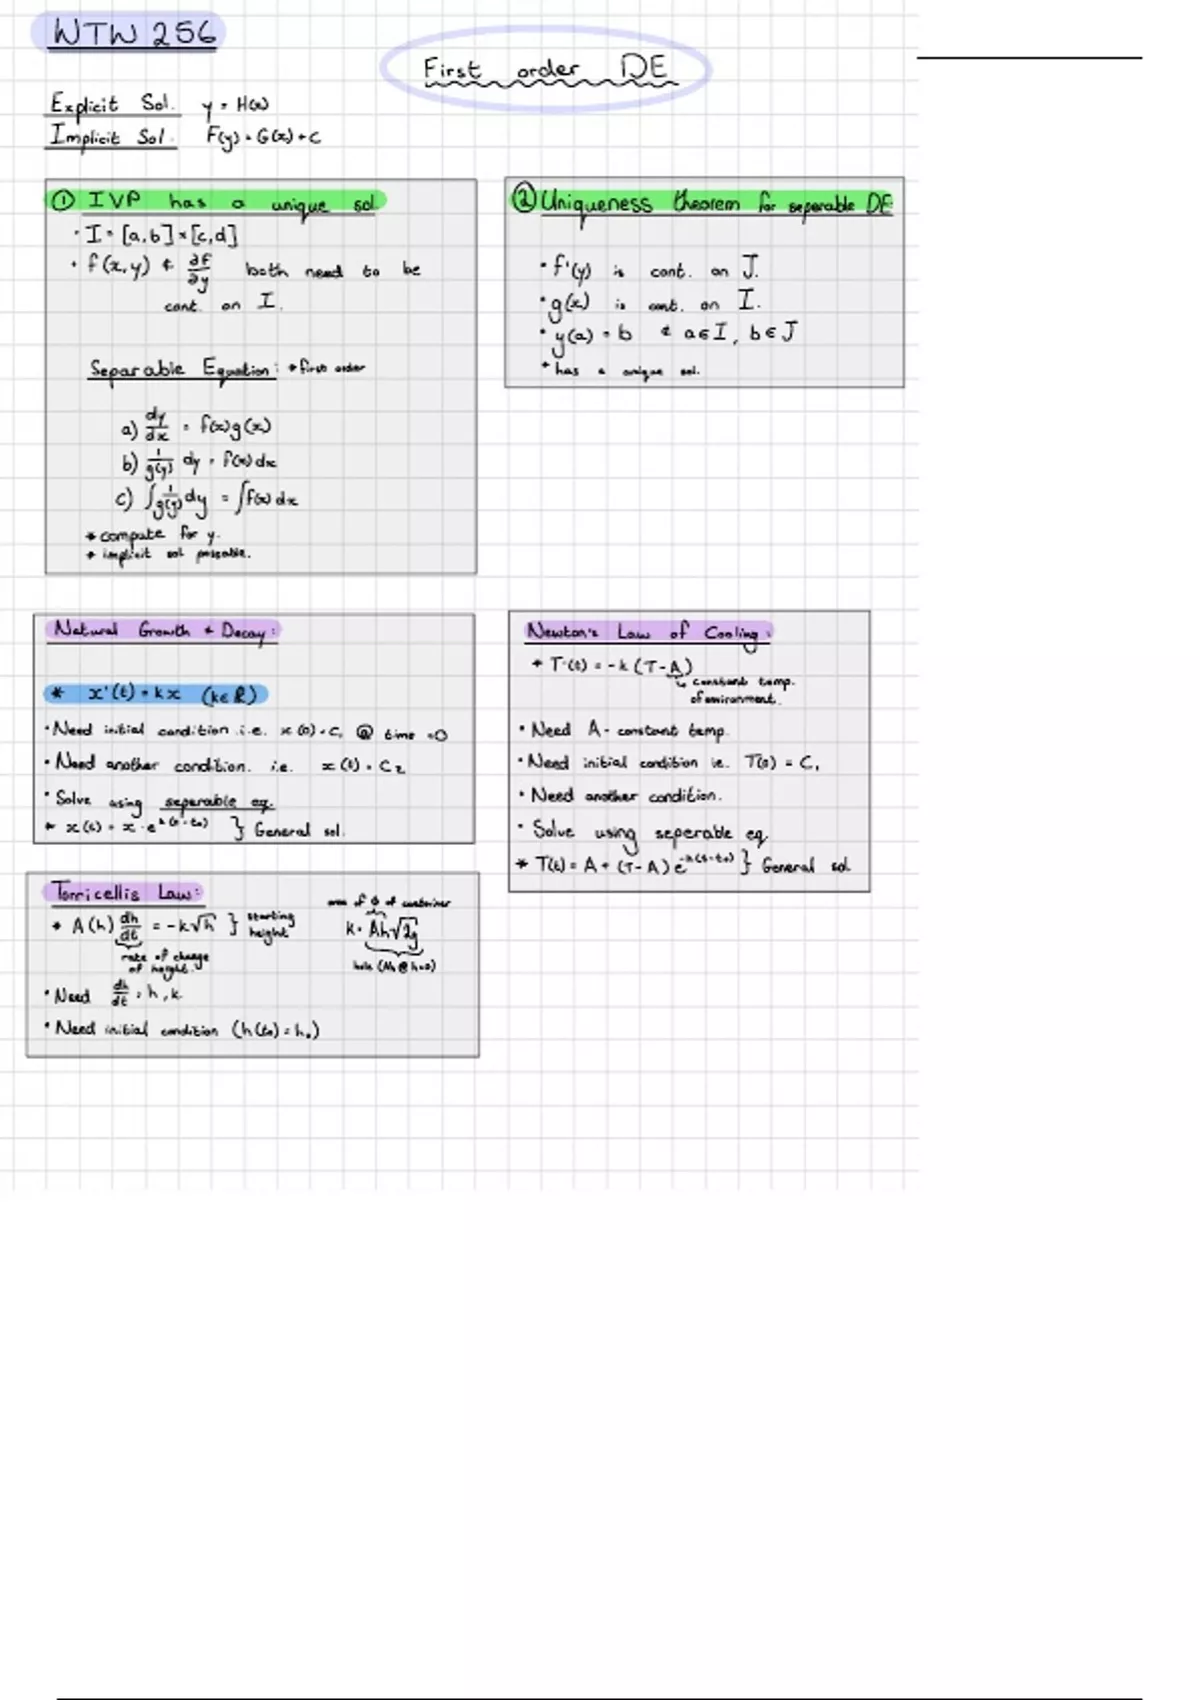 WTW 256
First order DE
Explicit Sol. y = H(x)
Implicit Sol. F(y) = G(x) + C
① IVP has a unique sol.
· I = [a,b] × [c,d]
· f(x,y) & ∂f/∂y both need to be
cont. on I.
Separable Equation: * first order
a) dy/dx = f(x)g(x)
b) 1/g(y) dy = f(x)dx
c) ∫1/g(y) dy = ∫f(x)dx
* compute for y.
* implicit sol poseable.
② Uniqueness theorem for seperable DE:
· f'(y) is cont. on J.
· g(x) is cont. on I.
· y(a) = b & a∈I, b∈J
* has a unique sol.
Natural Growth + Decay:
* x'(t) = kx (k∈R)
· Need initial condition i.e. x(0) = C₁ @ time = 0
· Need another condition. i.e. x(t) = C₂
· Solve using seperable eq.
* x(t) = x·e^k(t-t₀) } General sol.
Newton's Law of Cooling:
* T'(t) = -k(T-A)
↳ constant temp.
of environment.
· Need A - constant temp.
· Need initial condition ie. T(0) = C₁
· Need another condition.
· Solve using seperable eq.
* T(t) = A + (T-A)e^-k(t-t₀) } General sol.
Torricellis Law:
* A(h) dh/dt = -k√h } starting height
rate of change
of height.
· Need dh/dt, h, k
· Need initial condition (h(t₀) = h₀)
area of of container
k = Ah√2g
hole (Ah @ h=0)